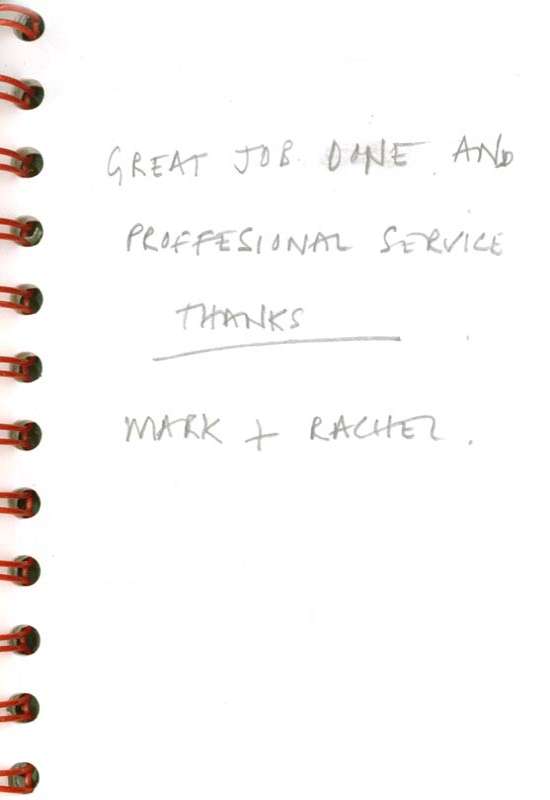 GREAT JOB DONE AND
PROFFESIONAL SERVICE
THANKS
MARK + RACHEL.